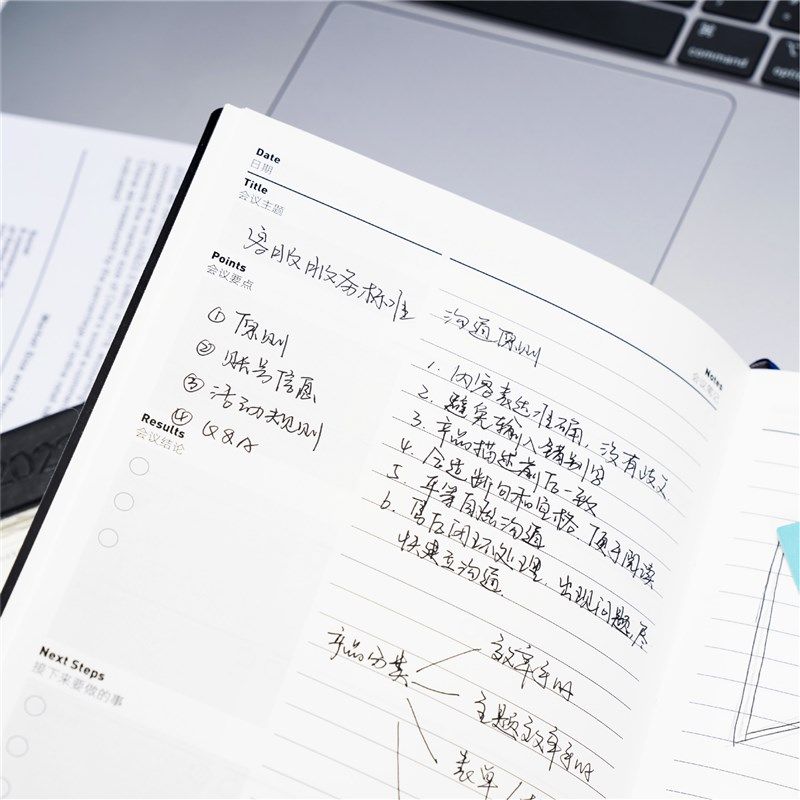 command
optio
Date
日期
Title
会议主题
客服服务标准
Points
会议要点
① 原则
② 账号信息
③ 活动规则
④ Q&A
Results
会议结论
Next Steps
接下来要做的事
Notes
会议笔记
沟通原则
1. 内容表达准确,没有歧义
2. 避免输入错别字
3. 产品描述前后一致
4. 合适断句和空格,便于阅读
5. 平等自然沟通
6. 售后闭环处理,出现问题,尽
快建立沟通
产品分类
效率手册
主题效率手册
表单